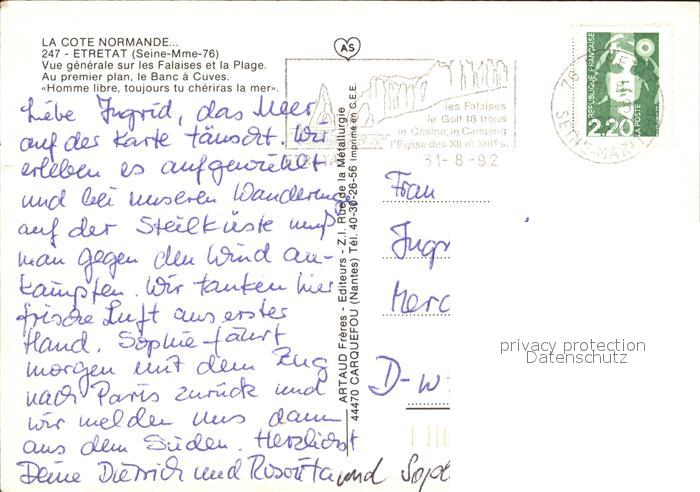 LA COTE NORMANDE...
247 - ETRETAT (Seine-Mme-76)
Vue générale sur les Falaises et la Plage.
Au premier plan, le Banc à Cuves.
«Homme libre, toujours tu chériras la mer».
Liebe Ingrid, das Meer
auf der Karte täuscht. Wir
erleben es aufgewühlt
und bei unseren Wanderungen
auf der Steilküste muß
man gegen den Wind an-
kämpfen. Wir tanken hier
frische Luft aus erster
Hand. Sophie fährt
morgen mit dem Zug
nach Paris zurück und
wir melden uns dann
aus dem Süden. Herzlichst
Deine Dietrich und Roswita und Soph
ARTAUD Frères - Editeurs - Z.I. Rue de la Métallurgie
44470 CARQUEFOU (Nantes) Tél. 40-30-26-56 Imprimé en C.E.E.
AS
les Falaises
le Golf 18 trous
le Casino, le Camping
l'Eglise des XII et XIIIe s.
31-8-92
REPUBLIQUE FRANÇAISE
2,20
LA POSTE
76
SEINE-MARIT
Frau
Ingr
Merc
D-W
privacy protection
Datenschutz